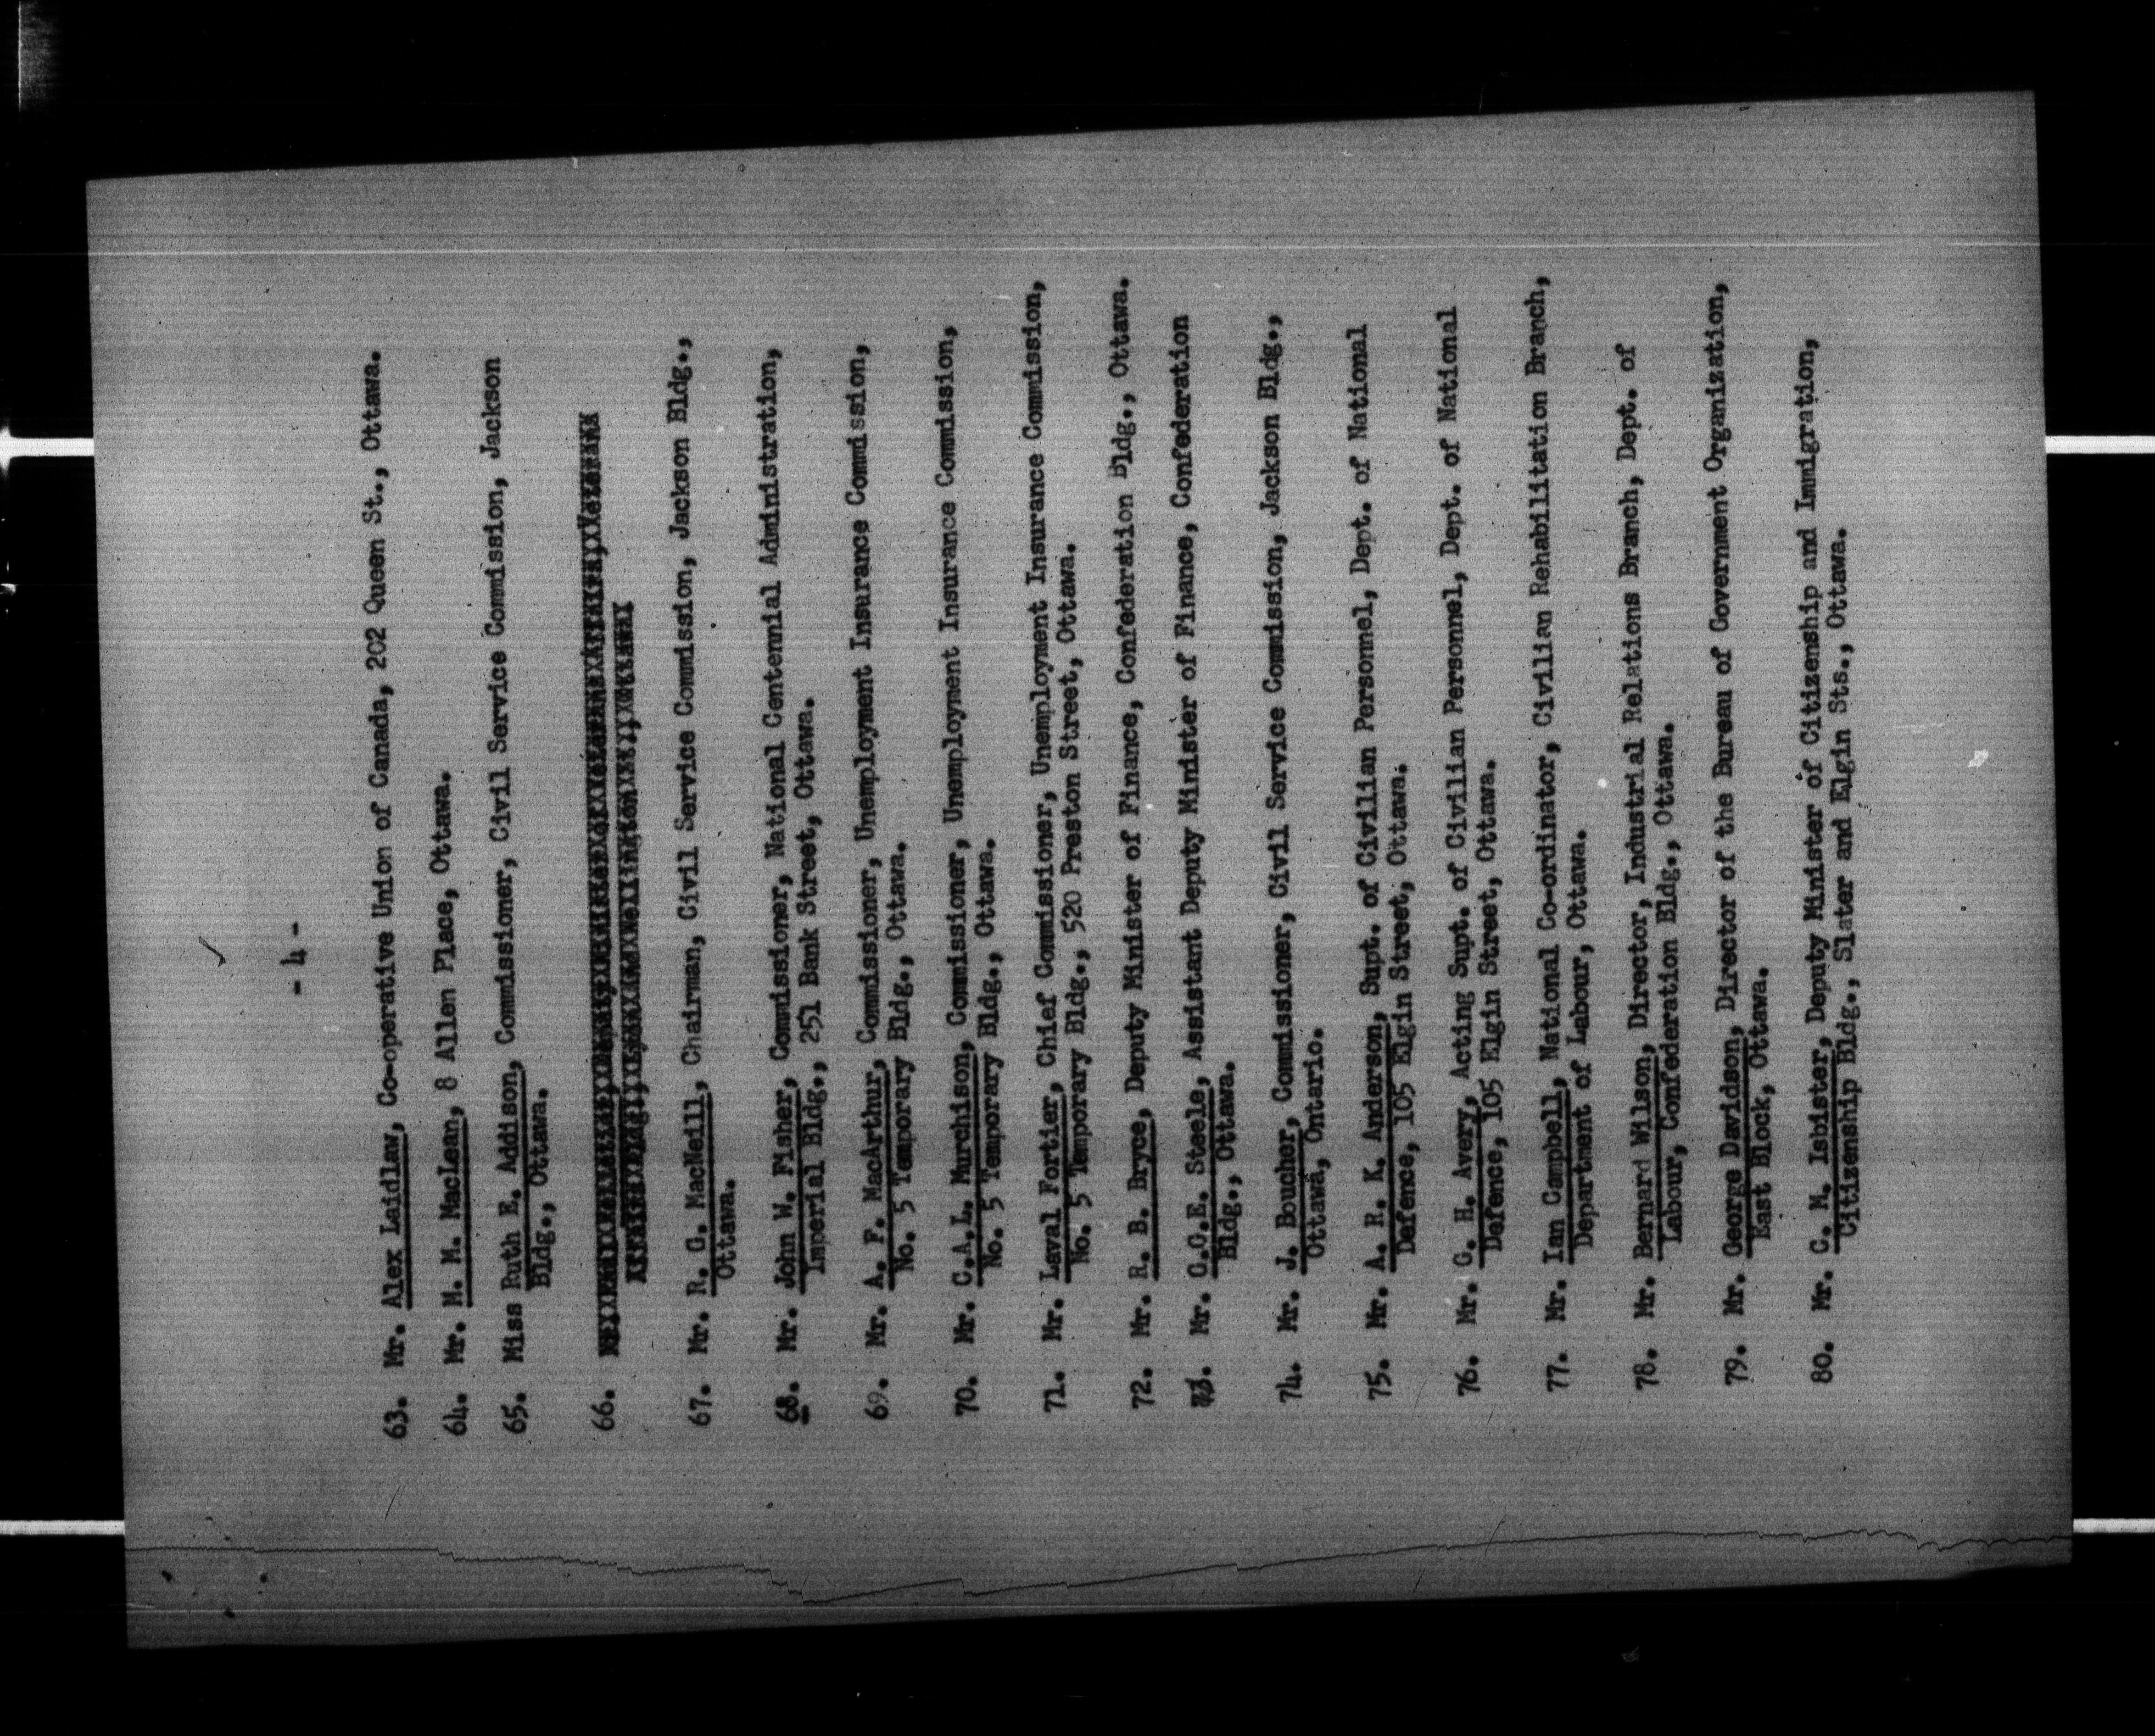 - 4 -
63. Mr. Alex Laidlaw, Co-operative Union of Canada, 202 Queen St., Ottawa.
64. Mr. M. M. MacLean, 8 Allen Place, Ottawa.
65. Miss Ruth E. Addison, Commissioner, Civil Service Commission, Jackson
Bldg., Ottawa.
66.
67. Mr. R. G. MacNeill, Chairman, Civil Service Commission, Jackson Bldg.,
Ottawa.
68. Mr. John W. Fisher, Commissioner, National Centennial Administration,
Imperial Bldg., 251 Bank Street, Ottawa.
69. Mr. A. F. MacArthur, Commissioner, Unemployment Insurance Commission,
No. 5 Temporary Bldg., Ottawa.
70. Mr. C.A.L. Murchison, Commissioner, Unemployment Insurance Commission,
No. 5 Temporary Bldg., Ottawa.
71. Mr. Laval Fortier, Chief Commissioner, Unemployment Insurance Commission,
No. 5 Temporary Bldg., 520 Preston Street, Ottawa.
72. Mr. R. B. Bryce, Deputy Minister of Finance, Confederation Bldg., Ottawa.
73. Mr. G.G.E. Steele, Assistant Deputy Minister of Finance, Confederation
Bldg., Ottawa.
74. Mr. J. Boucher, Commissioner, Civil Service Commission, Jackson Bldg.,
Ottawa, Ontario.
75. Mr. A. R. K. Anderson, Supt. of Civilian Personnel, Dept. of National
Defence, 105 Elgin Street, Ottawa.
76. Mr. G. H. Avery, Acting Supt. of Civilian Personnel, Dept. of National
Defence, 105 Elgin Street, Ottawa.
77. Mr. Ian Campbell, National Co-ordinator, Civilian Rehabilitation Branch,
Department of Labour, Ottawa.
78. Mr. Bernard Wilson, Director, Industrial Relations Branch, Dept. of
Labour, Confederation Bldg., Ottawa.
79. Mr. George Davidson, Director of the Bureau of Government Organization,
East Block, Ottawa.
80. Mr. C. M. Isbister, Deputy Minister of Citizenship and Immigration,
Citizenship Bldg., Slater and Elgin Sts., Ottawa.